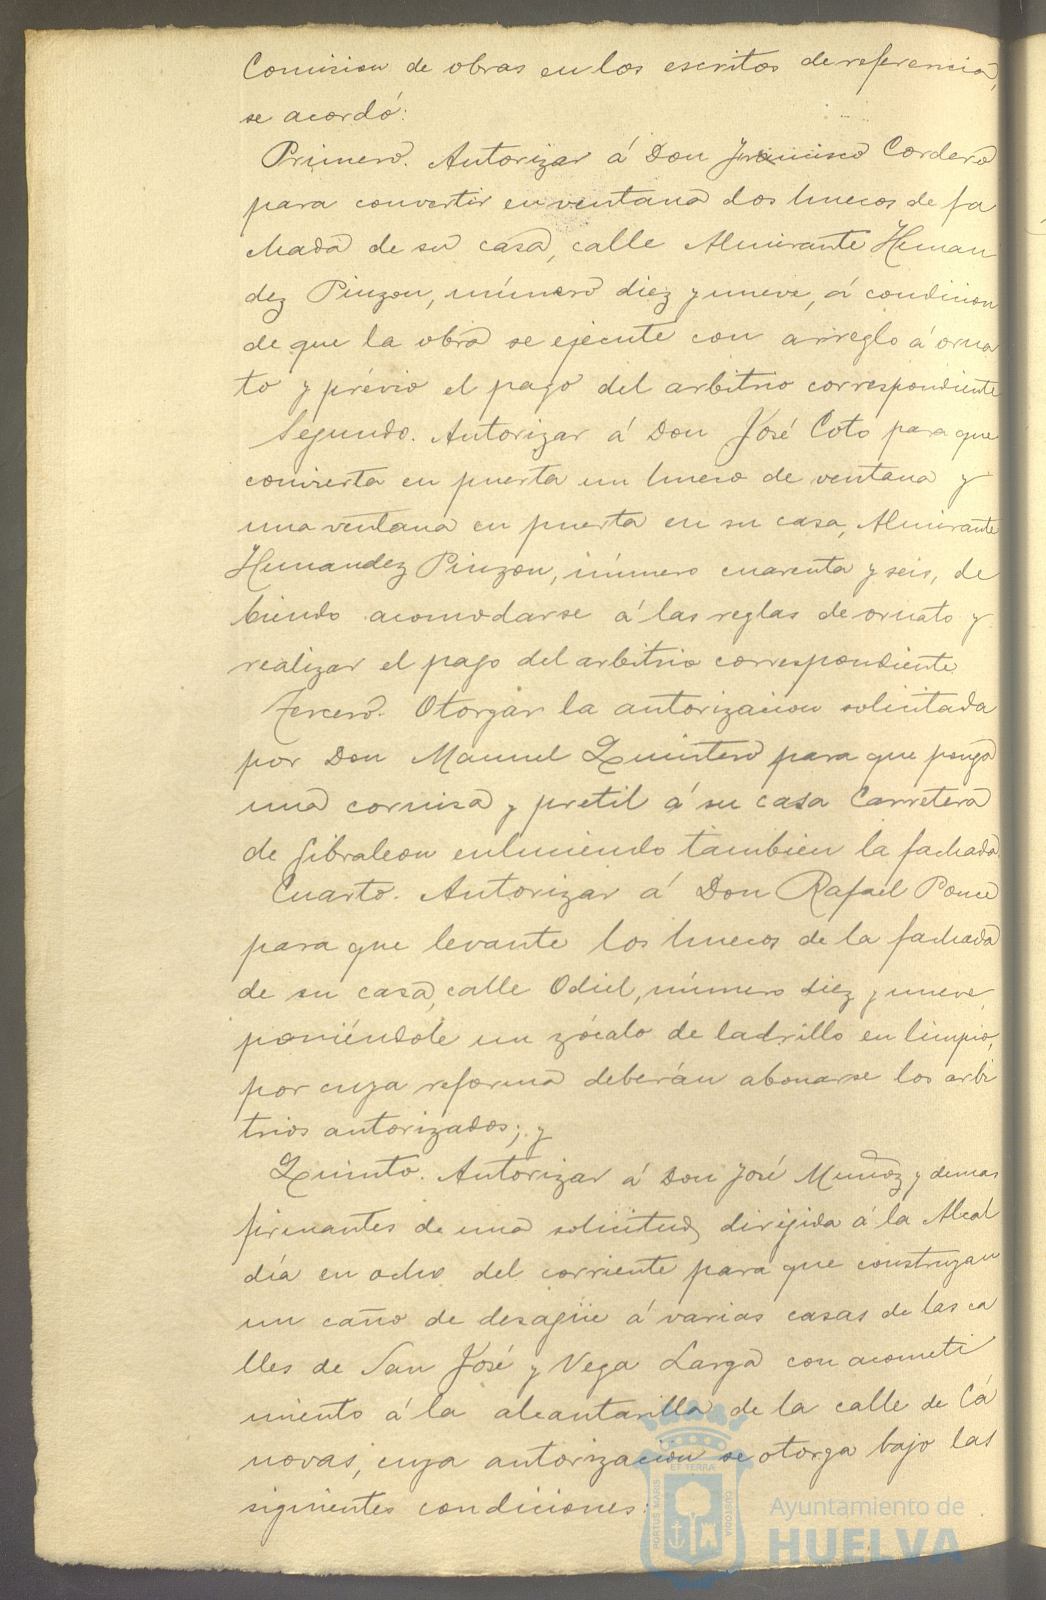 Comision de obras en los escritos de referencia,
se acordó:
Primero. Autorizar á Don Francisco Cordero
para convertir en ventana dos huecos de fa
chada de su casa, calle Almirante Hernan
dez Pinzon, número diez y nueve, á condicion
de que la obra se ejecute con arreglo á orna
to y prévio el pago del arbitrio correspondiente
Segundo. Autorizar á Don José Coto para que
convierta en puerta un hueco de ventana y
una ventana en puerta en su casa, Almirante
Hernandez Pinzon, número cuarenta y seis, de
biendo acomodarse á las reglas de ornato y
realizar el pago del arbitrio correspondiente
Tercero. Otorgar la autorizacion solicitada
por Don Manuel Quintero para que ponga
una cornisa y pretil á su casa Carretera
de Gibraleon enluciendo tambien la fachada.
Cuarto. Autorizar á Don Rafael Ponce
para que levante los huecos de la fachada
de su casa, calle Odiel, número diez y nueve,
poniéndole un zócalo de ladrillo en limpio,
por cuya reforma deberán abonarse los arbi
trios autorizados; y
Quinto. Autorizar á Don José Muñoz y demas
firmantes de una solicitud dirijida á la Alcal
día en ocho del corriente para que construyan
un caño de desagüe á varias casas de las ca
lles de San José y Vega Larga con acometi
miento á la alcantarilla de la calle de Cá
novas, cuya autorizacion se otorga bajo las
siguientes condiciones:
PORTUS MARIS ET TERRÆ CUSTODIA
Ayuntamiento de
HUELVA